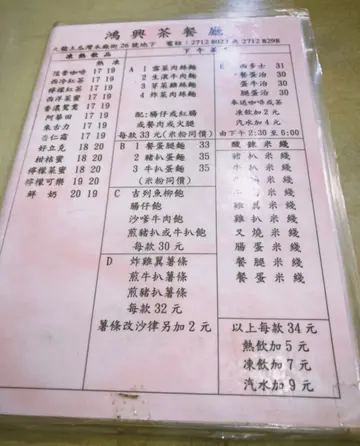 鴻興茶餐廳
九龍土瓜灣木廠街26號地下 電話：2712 8023 或 2712 8298
凍熱飲品
熱 凍
17 19
西冷紅茶 17 19
檸檬紅茶 17 19
西洋菜蜜 17 19
香濃鴛鴦 17 19
阿華田 17 19
朱古力 17 19
杏仁霜 17 19
好立克 18 20
柑桔蜜 18 20
檸檬菜蜜 18 20
檸檬可樂 19 20
鮮奶 20 19
A 1 雪菜肉絲麵
2 生滾牛肉麵
3 芽菜雞絲麵
4 炸菜肉絲麵
配：湯肉飽
或餐肉或火腿
每款 33 元(米粉同價)
B 1 餐蛋腿麵 33
2 豬扒蛋麵 35
3 牛扒蛋麵 35
(米粉同價)
C 吉列魚柳飽
腸仔飽
沙嗲牛肉飽
煎豬扒或牛扒飽
每款 30 元
D 炸雞翼薯條
煎牛扒薯條
煎豬扒薯條
每款 32 元
薯條改沙律另加 2 元
E 西多士 31
餐蛋治 30
蛋牛治 30
腿蛋治 30
奉送咖啡或茶
凍飲加 2 元
汽水加 4 元
由下午 2:30 至 6:00
酸辣米綫
豬扒米綫
牛扒米綫
雞扒米綫
叉燒米綫
腸蛋米綫
餐腿米綫
餐蛋米綫
以上每款 34 元
熱飲加 5 元
凍飲加 7 元
汽水加 9 元